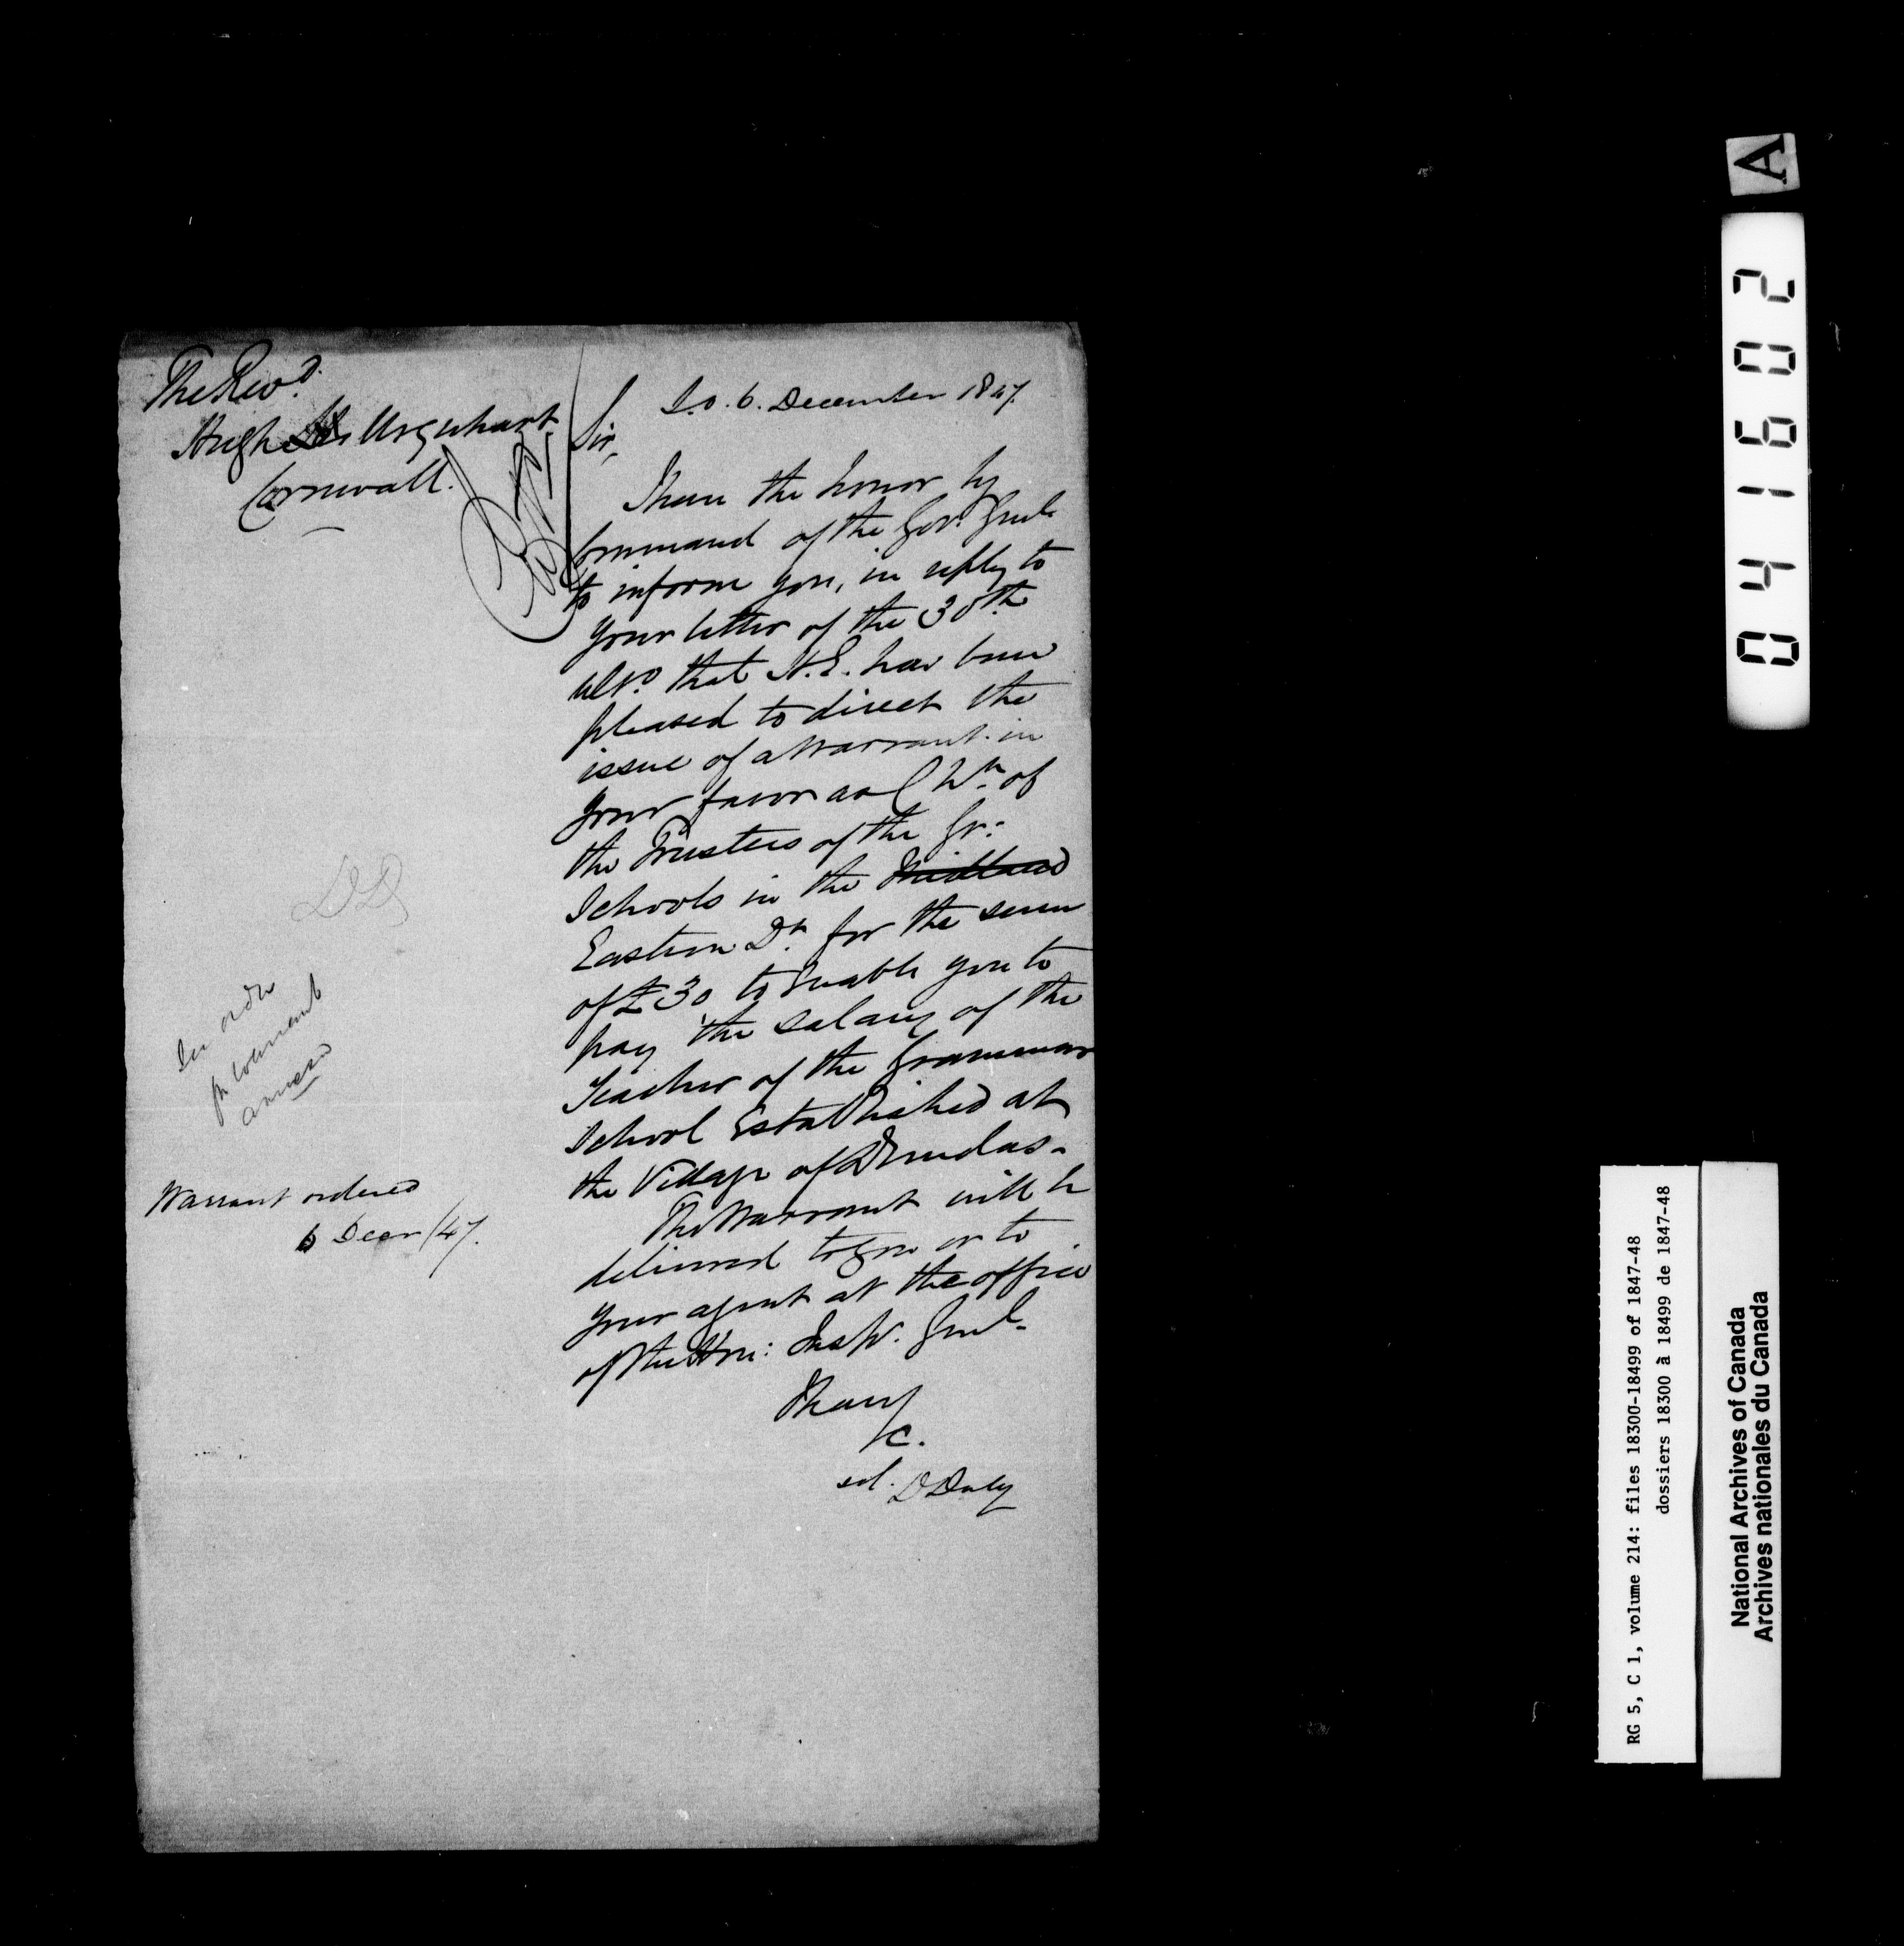 The Revd.
Hugh Urquhart
Cornwall.
S.O. 6. December 1847.
Sir,
I have the honor by
Command of the Govr. Genl.
to inform you, in reply to
your letter of the 30th
ulto. that H.E. has been
pleased to direct the
issue of a Warrant in
your favor as Chn. of
the Trustees of the Gr:
Schools in the Midland
Eastern Dt. for the sum
of £30 to Enable you to
pay the salary of the
Teacher of the Grammar
School Established at
the Village of Dundas.
The Warrant will be
delivered to you or to
your agent at the office
of the Hon: Insp. Genl.
I have
/c.
sd. D Daly
DD
order
for Warrant
annexd
Warrant ordered
6 Decr /47.
A
041602
RG 5, C 1, volume 214: files 18300-18499 of 1847-48
dossiers 18300 à 18499 de 1847-48
National Archives of Canada
Archives nationales du Canada